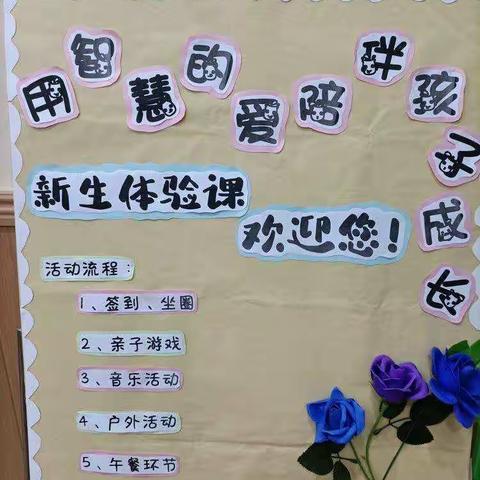 用智慧的爱陪伴孩子成长
新生体验课
欢迎您!
活动流程:
1、签到、坐圈
2、亲子游戏
3、音乐活动
4、户外活动
5、午餐环节